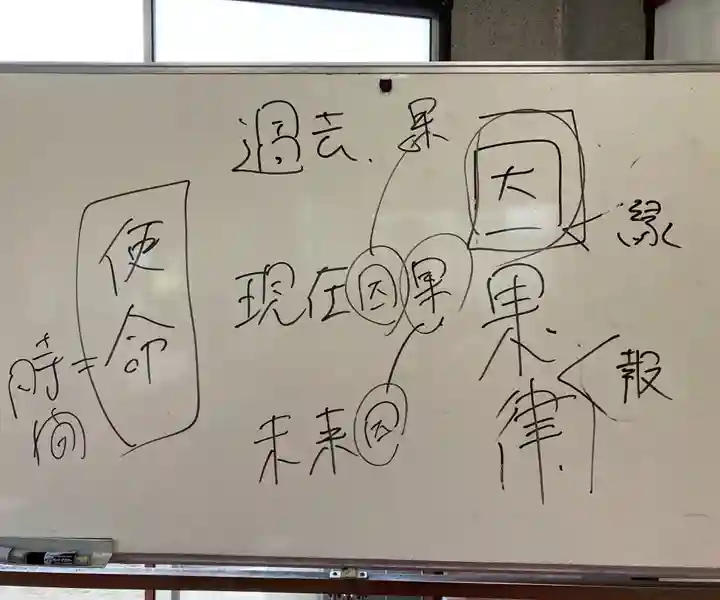 因果律
縁
報
過去、果
現在因果
未来因
使命
時間